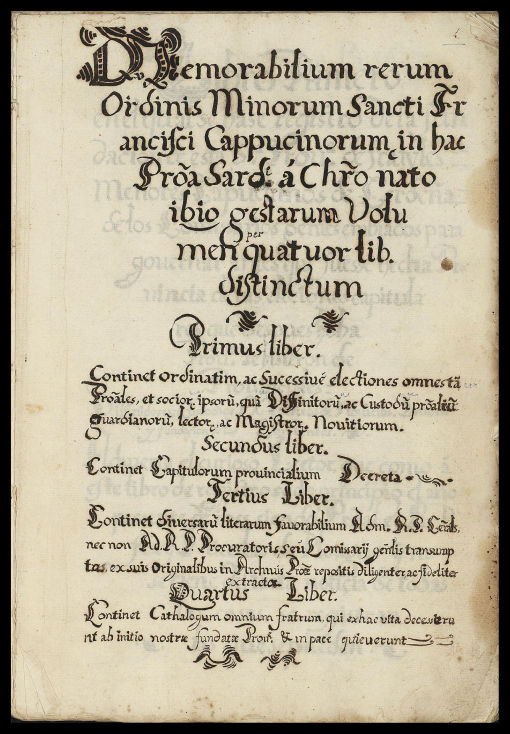 Memorabilium rerum
Ordinis Minorum Sancti Fr
ancisci Cappucinorum, in hac
Prōa Sardᵉ á Chrō nato
ibio gestarum Volu
per
men quatuor lib.
distinctum
Primus liber.
Continet Ordinatim, ac Sucessivé electiones omnes tā
Prōales, et socioꝝ ipsorū, quā Diffinitorū, ac Custodū prōaliū
guardianorū, lectoꝝ, ac Magistroꝝ Novitiorum.
Secundus liber.
Continet Capitulorum provincialium Decreta.
Tertius Liber.
Continet diversarū literarum favorabilium Adm. R. P. Gēralˢ,
nec non Ad. R. P. Procuratoris seu Comissarij geñlis transump
tas, ex suis Originalibus in Archivis Proæ repositis diligenter, ac fideliter
extractæ
Quartus Liber.
Continet Cathalogum omnium fratrum, qui ex hac vita decesseru
nt ab initio nostræ fundatæ & in pace quieverunt